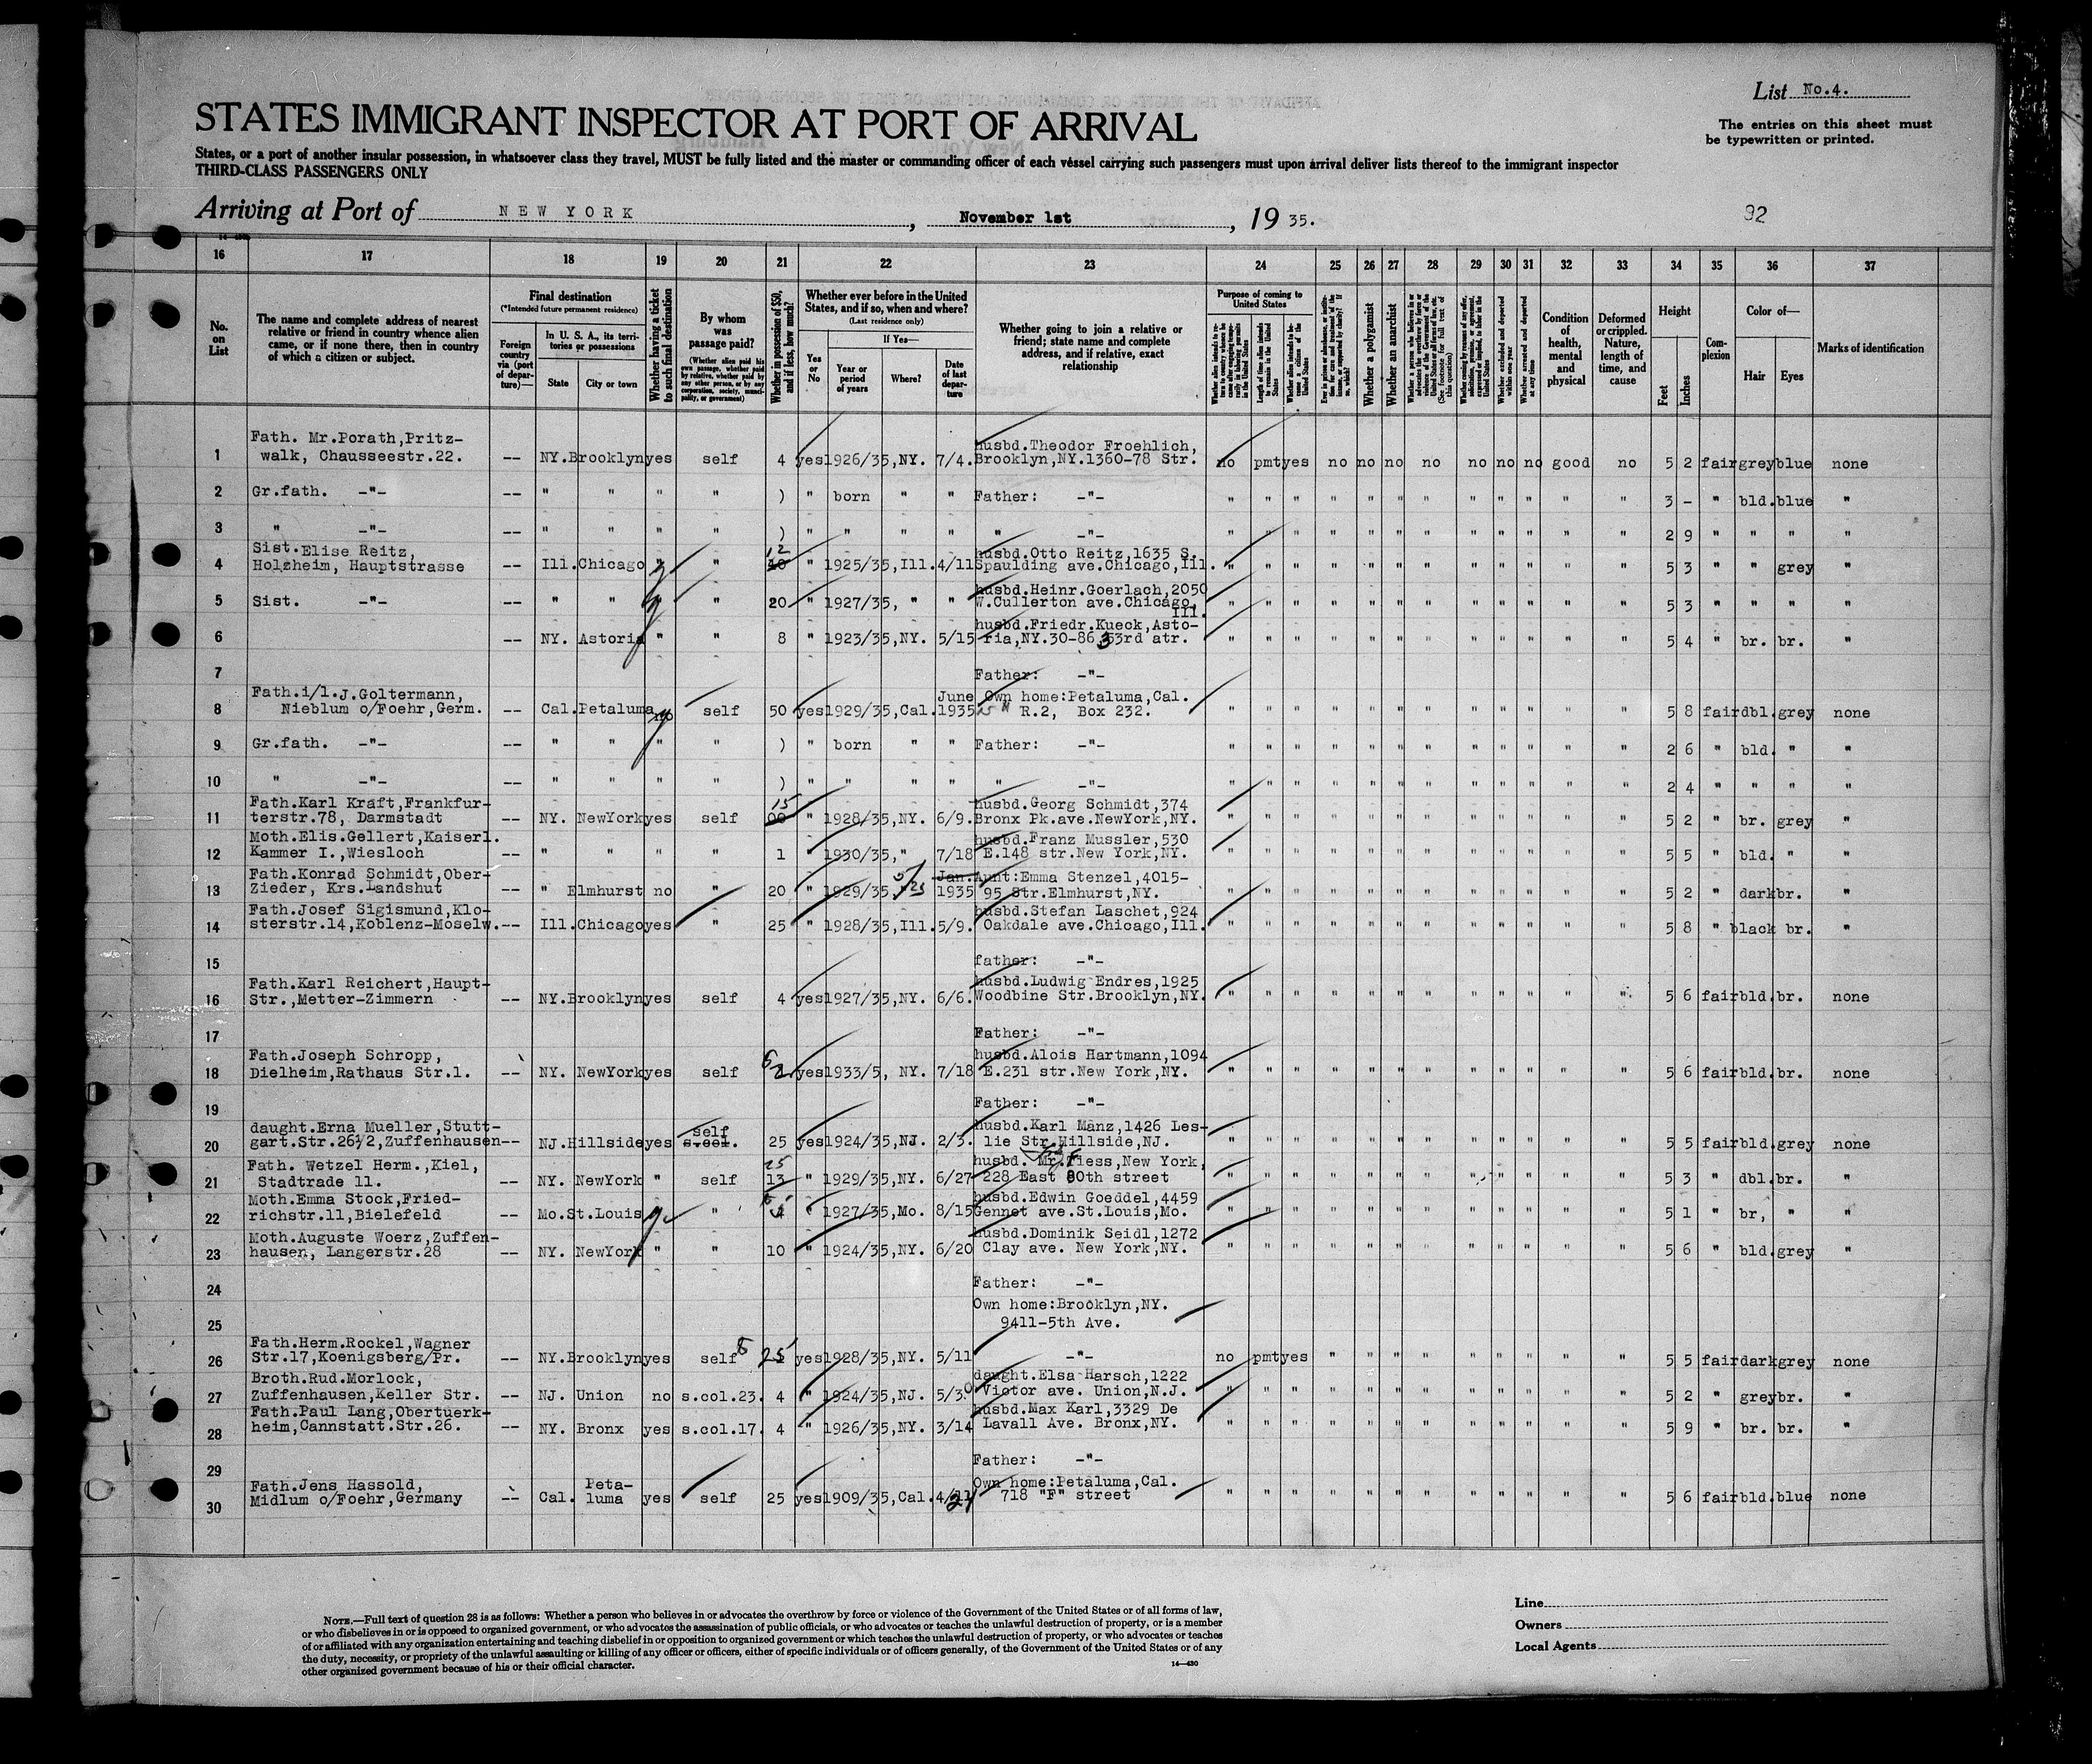 List No.4.
STATES IMMIGRANT INSPECTOR AT PORT OF ARRIVAL
The entries on this sheet must
be typewritten or printed.
States, or a port of another insular possession, in whatsoever class they travel, MUST be fully listed and the master or commanding officer of each vessel carrying such passengers must upon arrival deliver lists thereof to the immigrant inspector
THIRD-CLASS PASSENGERS ONLY
Arriving at Port of NEW YORK, November 1st, 19 35.
92
16 17 18 19 20 21 22 23 24 25 26 27 28 29 30 31 32 33 34 35 36 37
No. on List
The name and complete address of nearest relative or friend in country whence alien came, or if none there, then in country of which a citizen or subject.
Final destination
(*Intended future permanent residence)
Foreign country via (port of departure)—
In U. S. A., its territories or possessions
State
City or town
Whether having a ticket to such final destination
By whom was passage paid?
(Whether alien paid his own passage, whether paid by relative, whether paid by any other person, or by any corporation, society, municipality, or government)
Whether in possession of $50, and if less, how much?
Whether ever before in the United States, and if so, when and where?
(Last residence only)
Yes or No
If Yes—
Year or period of years
Where?
Date of last departure
Whether going to join a relative or friend; state name and complete address, and if relative, exact relationship
Purpose of coming to United States
Length of time alien intends to remain in the United States
Whether alien intends to become a citizen of the United States
Whether a polygamist
Whether an anarchist
Whether excluded and deported within one year
Whether arrested and deported at any time
Condition of health, mental and physical
Deformed or crippled. Nature, length of time, and cause
Height
Feet
Inches
Complexion
Color of—
Hair
Eyes
Marks of identification
1 Fath. Mr.Porath,Pritz-
walk, Chausseestr.22. -- NY. Brooklyn yes self 4 yes 1926/35,NY. 7/4. husbd.Theodor Froehlich,
Brooklyn,NY.1360-78 Str. no pmt yes no no no no no no no good no 5 2 fair grey blue none
2 Gr.fath. -"- -- " " " " ) " born " " Father: -"- " " " " " " " " " " " " 3 - " bld. blue "
3 " -"- -- " " " " ) " " " " " -"- " " " " " " " " " " " " 2 9 " " " "
4 Sist.Elise Reitz,
Holzheim, Hauptstrasse -- Ill. Chicago " " 12 " 1925/35,Ill. 4/11 husbd.Otto Reitz,1635 S.
Spaulding ave.Chicago,Ill. " " " " " " " " " " " " 5 3 " " grey "
5 Sist. -"- -- " " " " 20 " 1927/35, " " husbd.Heinr.Goerlach,2050
W.Cullerton ave.Chicago,
Ill. " " " " " " " " " " " " 5 3 " " " "
6 -- NY. Astoria " " 8 " 1923/35,NY. 5/15 husbd.Friedr.Kueck,Asto-
ria,NY.30-86 33rd atr. " " " " " " " " " " " " 5 4 " br. br. "
7 Father: -"-
8 Fath.i/l.J.Goltermann,
Nieblum o/Foehr,Germ. -- Cal. Petaluma no self 50 yes 1929/35,Cal. June 1935 Own home:Petaluma,Cal.
R.2, Box 232. " " " " " " " " " " " " 5 8 fair dbl. grey none
9 Gr.fath. -"- -- " " " " ) " born " " Father: -"- " " " " " " " " " " " " 2 6 " bld. " "
10 " -"- -- " " " " ) " " " " " -"- " " " " " " " " " " " " 2 4 " " " "
11 Fath.Karl Kraft,Frankfur-
terstr.78, Darmstadt -- NY. NewYork yes self 15 " 1928/35,NY. 6/9. husbd.Georg Schmidt,374
Bronx Pk.ave.NewYork,NY. " " " " " " " " " " " " 5 2 " br. grey "
12 Moth.Elis.Gellert,Kaiserl.
Kammer I.,Wiesloch -- " " " " 1 " 1930/35," 7/18 husbd.Franz Mussler,530
E.148 str.New York,NY. " " " " " " " " " " " " 5 5 " bld. " "
13 Fath.Konrad Schmidt,Ober-
Zieder, Krs.Landshut -- " Elmhurst no " 20 " 1929/35, 5/25 Jan. 1935 Aunt:Emma Stenzel,4015-
95 Str.Elmhurst,NY. " " " " " " " " " " " " 5 2 " dark br. "
14 Fath.Josef Sigismund,Klo-
sterstr.14,Koblenz-Moselw. -- Ill. Chicago yes " 25 " 1928/35,Ill. 5/9. husbd.Stefan Laschet,924
Oakdale ave.Chicago,Ill. " " " " " " " " " " " " 5 8 " black br. "
15 father: -"-
16 Fath.Karl Reichert,Haupt-
Str.,Metter-Zimmern -- NY. Brooklyn yes self 4 yes 1927/35,NY. 6/6. husbd.Ludwig Endres,1925
Woodbine Str.Brooklyn,NY. " " " " " " " " " " " " 5 6 fair bld. br. none
17 Father: -"-
18 Fath.Joseph Schropp,
Dielheim,Rathaus Str.1. -- NY. NewYork yes self 2 yes 1933/5, NY. 7/18 husbd.Alois Hartmann,1094
E.231 str.New York,NY. " " " " " " " " " " " " 5 6 fair bld. br. none
19 Father: -"-
20 daught.Erna Mueller,Stutt-
gart.Str.26½,Zuffenhausen -- NJ. Hillside yes self s.col. 25 yes 1924/35,NJ. 2/3. husbd.Karl Manz,1426 Les-
lie Str.Hillside,NJ. " " " " " " " " " " " " 5 5 fair bld. grey none
21 Fath. Wetzel Herm.,Kiel,
Stadtrade 11. -- NY. NewYork " self 25 13 " 1929/35,NY. 6/27 husbd. Mr.Tiess,New York,
228 East 80th street " " " " " " " " " " " " 5 3 " dbl. br. "
22 Moth.Emma Stock,Fried-
richstr.11,Bielefeld -- Mo. St.Louis " 4 " 1927/35,Mo. 8/15 husbd.Edwin Goeddel,4459
Gennet ave.St.Louis,Mo. " " " " " " " " " " " " 5 1 " br, " "
23 Moth.Auguste Woerz,Zuffen-
hausen, Langerstr.28 -- NY. NewYork " " 10 " 1924/35,NY. 6/20 husbd.Dominik Seidl,1272
Clay ave. New York,NY. " " " " " " " " " " " " 5 6 " bld. grey "
24 Father: -"-
25 Own home:Brooklyn,NY.
9411-5th Ave.
26 Fath.Herm.Rockel,Wagner
Str.17,Koenigsberg/Pr. -- NY. Brooklyn yes self 25 yes 1928/35,NY. 5/11 -"- no pmt yes " " " " " " " " " 5 5 fair dark grey none
27 Broth.Rud.Morlock,
Zuffenhausen,Keller Str. -- NJ. Union no s.col.23. 4 " 1924/35,NJ. 5/30 daught.Elsa Harsch,1222
Victor ave. Union,N.J. " " " " " " " " " " " " 5 2 " grey br. "
28 Fath.Paul Lang,Obertuerk-
heim,Cannstatt.Str.26. -- NY. Bronx yes s.col.17. 4 " 1926/35,NY. 3/14 husbd.Max Karl,3329 De
Lavall Ave. Bronx,NY. " " " " " " " " " " " " 5 9 " br. br. "
29 Father: -"-
30 Fath.Jens Hassold,
Midlum o/Foehr,Germany -- Cal. Peta-
luma yes self 25 yes 1909/35,Cal. Own home:Petaluma,Cal.
718 "F" street " " " " " " " " " " " " 5 6 fair bld. blue none
NOTE.—Full text of question 28 is as follows: Whether a person who believes in or advocates the overthrow by force or violence of the Government of the United States or of all forms of law,
or who disbelieves in or is opposed to organized government, or who advocates the assassination of public officials, or who advocates or teaches the unlawful destruction of property, or is a member
of or affiliated with any organization entertaining and teaching disbelief in or opposition to organized government or which teaches the unlawful destruction of property, or who advocates or teaches
the duty, necessity, or propriety of the unlawful assaulting or killing of any officer or officers, either of specific individuals or of officers generally, of the Government of the United States or of any
other organized government because of his or their official character.
14—430
Line
Owners
Local Agents